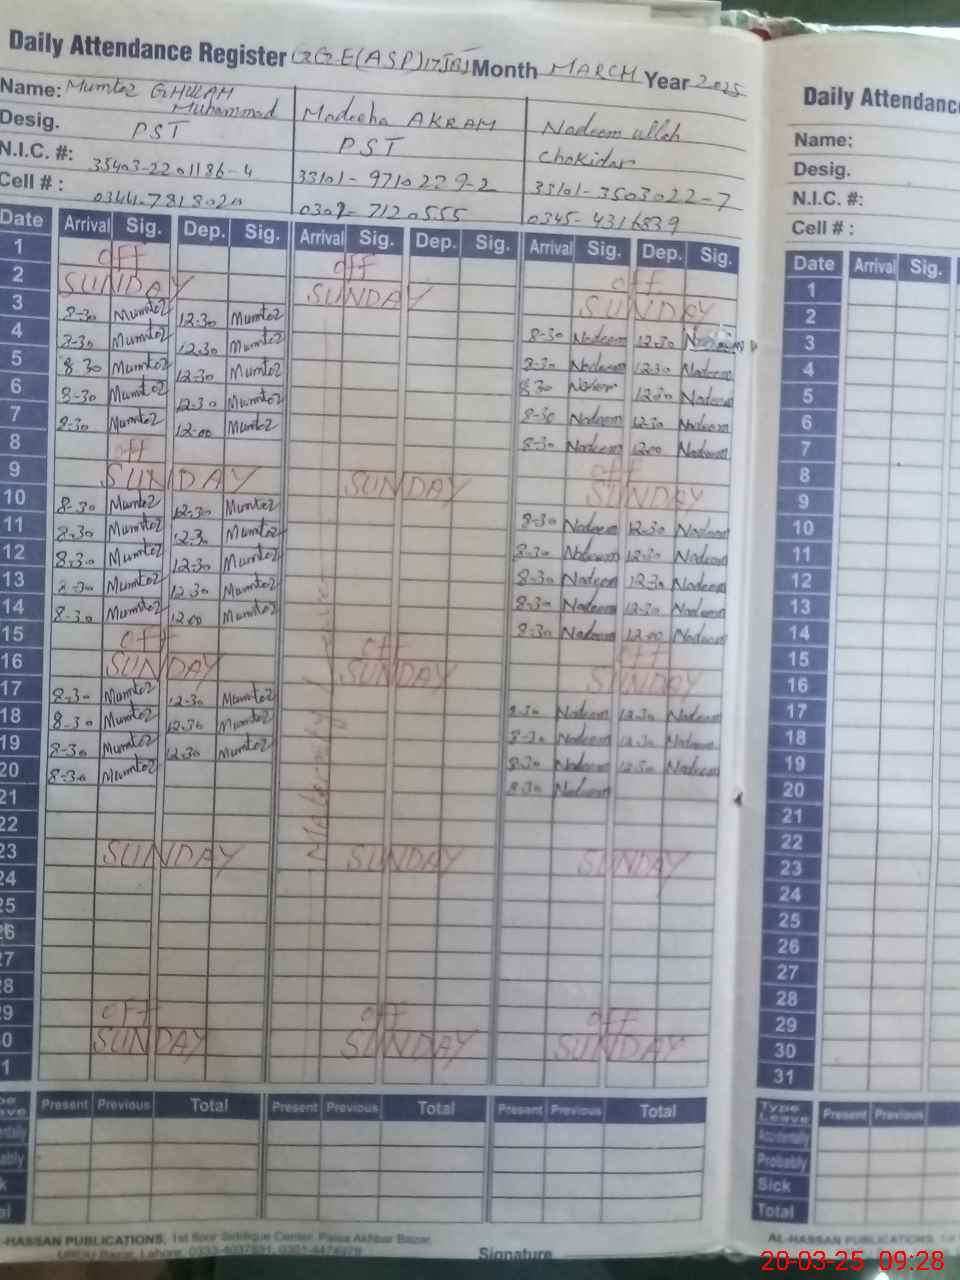 Daily Attendance Register GGE(ASP)17JB Month MARCH Year 2025
Name: Mumtaz GHULAM Muhammad Madeeha AKRAM Nadeem ullah
Desig. PST PST Chokidar
N.I.C. #: 35403-2201186-4 33101-9710229-2 33101-3503022-7
Cell # : 0344-7818020 0309-7120555 0345-4316839
Date Arrival Sig. Dep. Sig. Arrival Sig. Dep. Sig. Arrival Sig. Dep. Sig.
1 off off off
2 SUNDAY SUNDAY SUNDAY
3 8-30 Mumtaz 12-30 Mumtaz 8-30 Nadeem 12-30
4 8-30 Mumtaz 12-30 Mumtaz 8-30 Nadeem 12-30 Nadeem
5 8-30 Mumtaz 12-30 Mumtaz 8-30 12-30 Nadeem
6 8-30 Mumtaz 12-30 Mumtaz 8-30 Nadeem 12-30 Nadeem
7 8-30 Mumtaz 12-00 Mumtaz 8-30 Nadeem 12-00 Nadeem
8 off off
9 SUNDAY SUNDAY SUNDAY
10 8-30 Mumtaz 12-30 Mumtaz 8-30 Nadeem 12-30 Nadeem
11 8-30 Mumtaz 12-30 Mumtaz 8-30 Nadeem 12-30 Nadeem
12 8-30 Mumtaz 12-30 Mumtaz 8-30 Nadeem 12-30 Nadeem
13 8-30 Mumtaz 12-30 Mumtaz 8-30 Nadeem 12-30 Nadeem
14 8-30 Mumtaz 12-00 Mumtaz 8-30 Nadeem 12-00 Nadeem
15 off off off
16 SUNDAY SUNDAY SUNDAY
17 8-30 Mumtaz 12-30 Mumtaz 8-30 Nadeem 12-30 Nadeem
18 8-30 Mumtaz 12-30 Mumtaz 8-30 Nadeem 12-30 Nadeem
19 8-30 Mumtaz 12-30 Mumtaz 8-30 Nadeem 12-30 Nadeem
20 8-30 Mumtaz 8-30 Nadeem
21
22
23 SUNDAY SUNDAY SUNDAY
24
25
26
27
28
29 off off off
30 SUNDAY SUNDAY SUNDAY
1
Maternity Leave
Present Previous Total Present Previous Total Present Previous Total
-HASSAN PUBLICATIONS, 1st floor Siddique Center, Paisa Akhbar Bazar,
Urdu Bazar, Lahore,
Signature
Daily Attendance
Name:
Desig.
N.I.C. #:
Cell # :
Date Arrival Sig.
1
2
3
4
5
6
7
8
9
10
11
12
13
14
15
16
17
18
19
20
21
22
23
24
25
26
27
28
29
30
31
Type Leave Present Previous
Accidentally
Probably
Sick
Total
AL-HASSAN PUBLICATIONS,
20-03-25 09:28